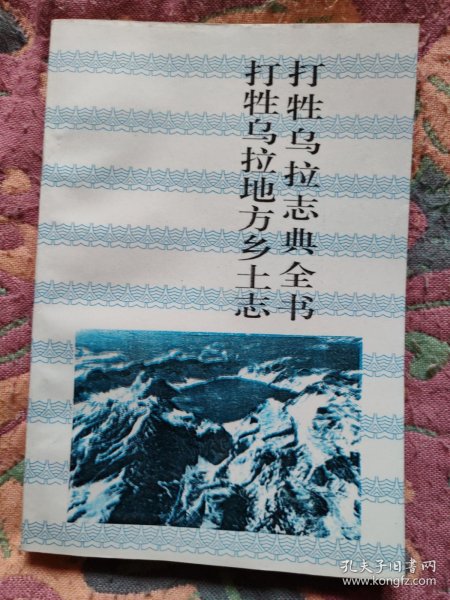 打牲乌拉志典全书
打牲乌拉地方乡土志
孔夫子旧书网
www.kongfz.com